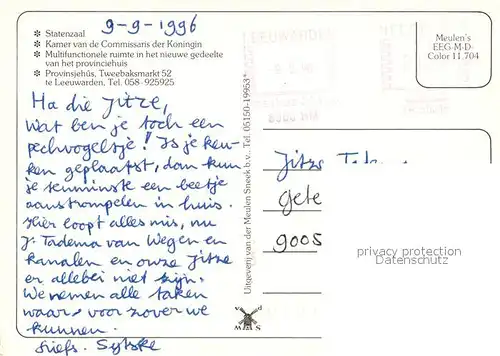 9-9-1996
* Statenzaal
* Kamer van de Commissaris der Koningin
* Multifunctionele ruimte in het nieuwe gedeelte
van het provinciehuis
* Provinsjehûs, Tweebaksmarkt 52
te Leeuwarden, Tel. 058-925925
Ha die Jitze,
Wat ben je toch een
pechvogeltje! Is je keu-
ken geplaatst, dan kun
je tenminste een beetje
aanstrompelen in huis.
Hier loopt alles mis, nu
J. Tadema van Wegen en
kanalen en onze Jitze
er allebei niet zijn.
We nemen alle taken
waar voor zover we
kunnen.
liefs. Sytske
Uitgeverij van der Meulen Sneek b.v., Tel. 05150-19953*
LEEUWARDEN
Meulen's
EEG-M-D-
Color 11.704
Jitze
9005
privacy protection
Datenschutz